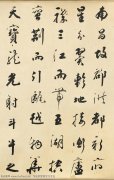 南昌故郡洪都新府
星分翼軫地接衡廬
襟三江而帶五湖控
蠻荊而引甌越物華
天寶龍光射牛斗之